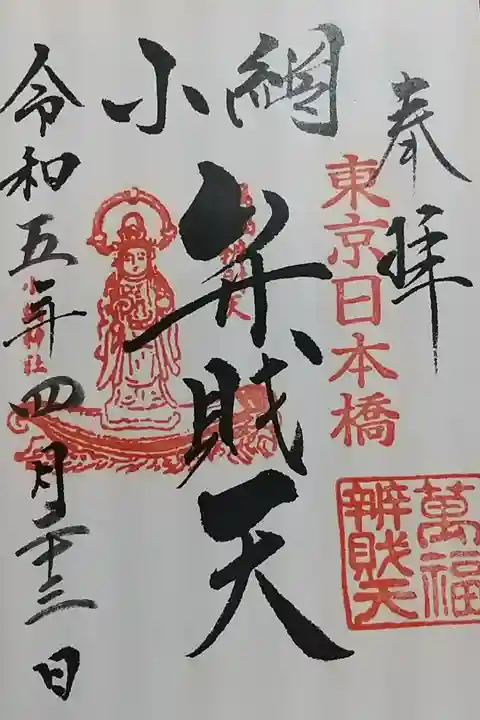 奉拝
東京日本橋
萬福
辨財天
小網
弁財天
令和五年四月二十三日
小網神社